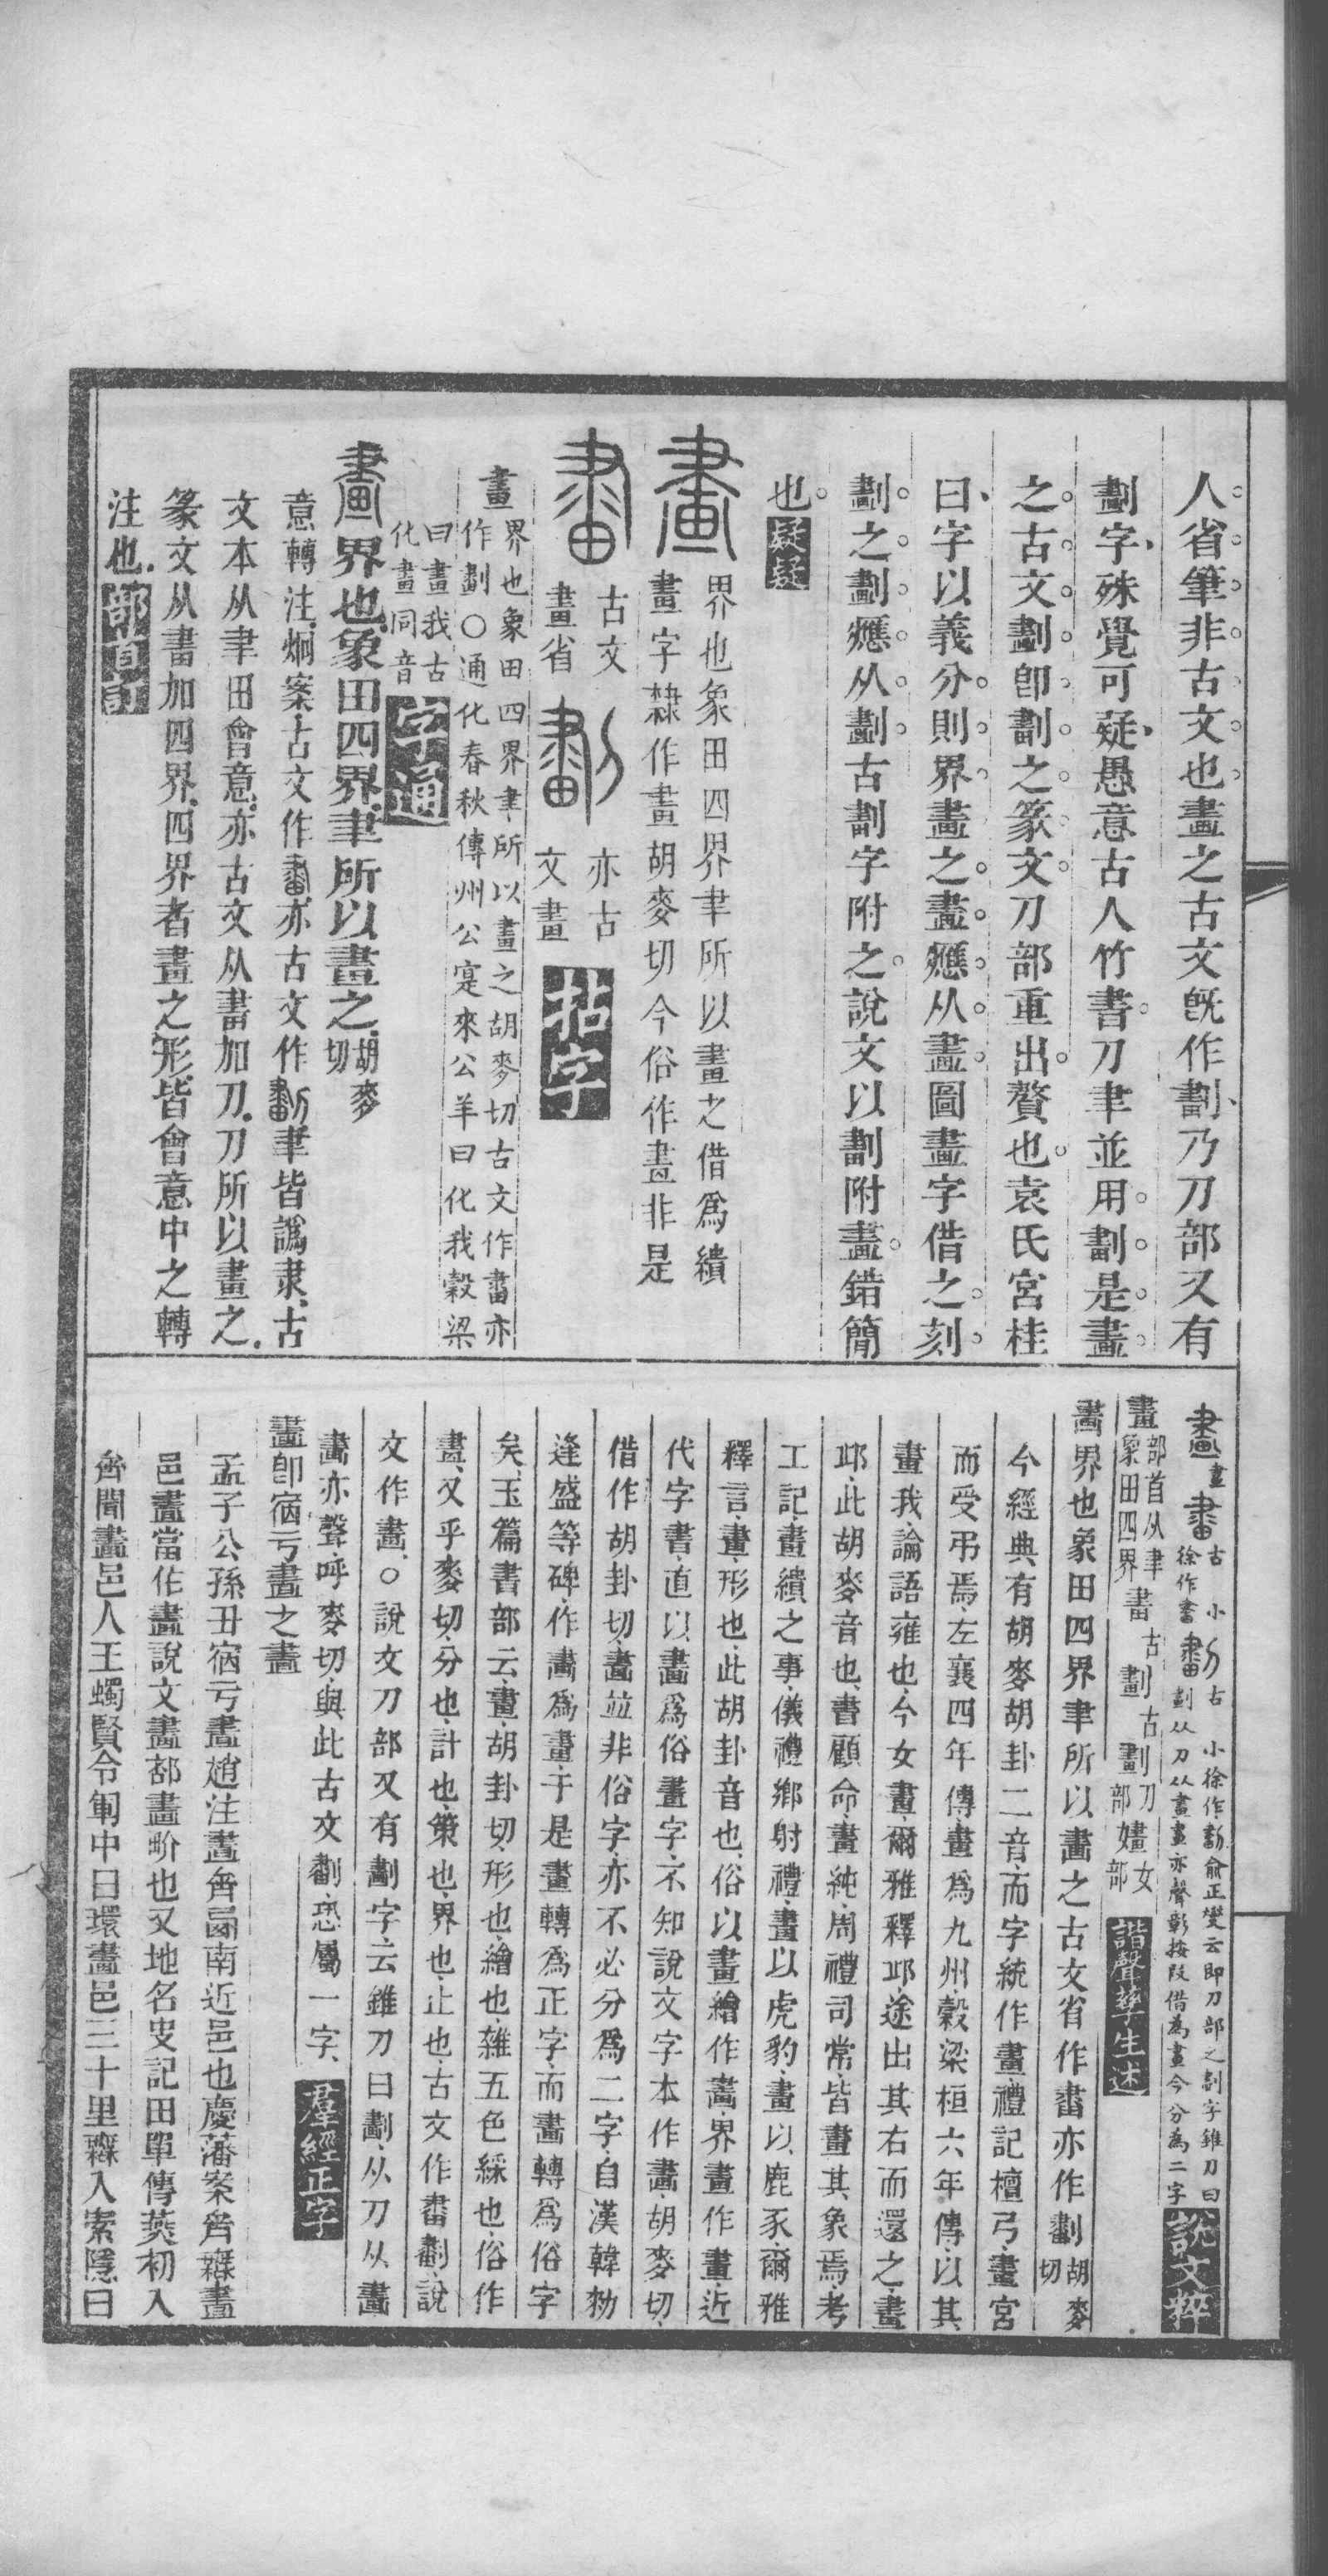 人省筆非古文也畫之古文旣作劃乃刀部又有
劃字殊覺可疑愚意古人竹書刀聿並用劃是畫
之古文劃卽劃之篆文刀部重出贅也袁氏宮桂
曰字以義分則界畫之畫應从畫圖畫字借之刻
劃之劃應从劃古劃字附之說文以劃附畫錯簡
也疑疑
畫
界也象田四界聿所以畫之借爲繢
畫字隸作畫胡麥切今俗作畫非是
古文
畫省
亦古
文畫
拈字
畫
界也象田四界聿所以畫之胡麥切古文作畵亦
作劃〇通化春秋傳州公寔來公羊曰化我穀梁
曰畫我古
化畫同音
字通
畫界也象田四界聿所以畫之胡麥切
意轉注烱案古文作畵亦古文作劃聿皆譌隶古
文本从聿田會意亦古文从畵加刀刀所以畫之
篆文从畵加四界四界者畫之形皆會意中之轉
注也
畫畫
畵古
徐作畵
小徐作劃俞正燮云即刀部之劃字錐刀曰
劃从刀从畫畫亦聲彰按段借為畫今分為二字
說文粹
畫部首从聿
象田四界
畵古劃古劃刀部㜇女部
諧聲孳生述
畫界也象田四界聿所以畫之古文省作畵亦作劃胡麥切
今經典有胡麥胡卦二音而字統作畫禮記檀弓畫宮
而受弔焉左襄四年傳畫爲九州穀梁桓六年傳以其
畫我論語雍也今女畫爾雅釋邱途出其右而還之畫
邱此胡麥音也書顧命畫純周禮司常皆畫其象焉考
工記畫繢之事儀禮鄉射禮畫以虎豹畫以鹿豕爾雅
釋言畫形也此胡卦音也俗以畫繪作畵界畫作畫近
代字書直以畵爲俗畫字不知說文字本作畵胡麥切
借作胡卦切畵並非俗字亦不必分爲二字自漢韓勑
逢盛等碑作畵爲畫于是畫轉爲正字而畵轉爲俗字
矣玉篇書部云畫胡卦切形也繪也雜五色綵也俗作
畵又乎麥切分也計也策也界也止也古文作畵劃說
文作畵〇說文刀部又有劃字云錐刀曰劃从刀从畵
畵亦聲呼麥切與此古文劃恐屬一字
羣經正字
畫卽宿亏畫之畫
孟子公孫丑宿亏畫趙注畫齊國南近邑也慶藩案齊䥫畫
邑畫當作畫說文畫部畫畍也又地名史記田單傳燕初入
齊聞畫邑人王蠋賢令軍中曰環畫邑三十里無入索隱曰